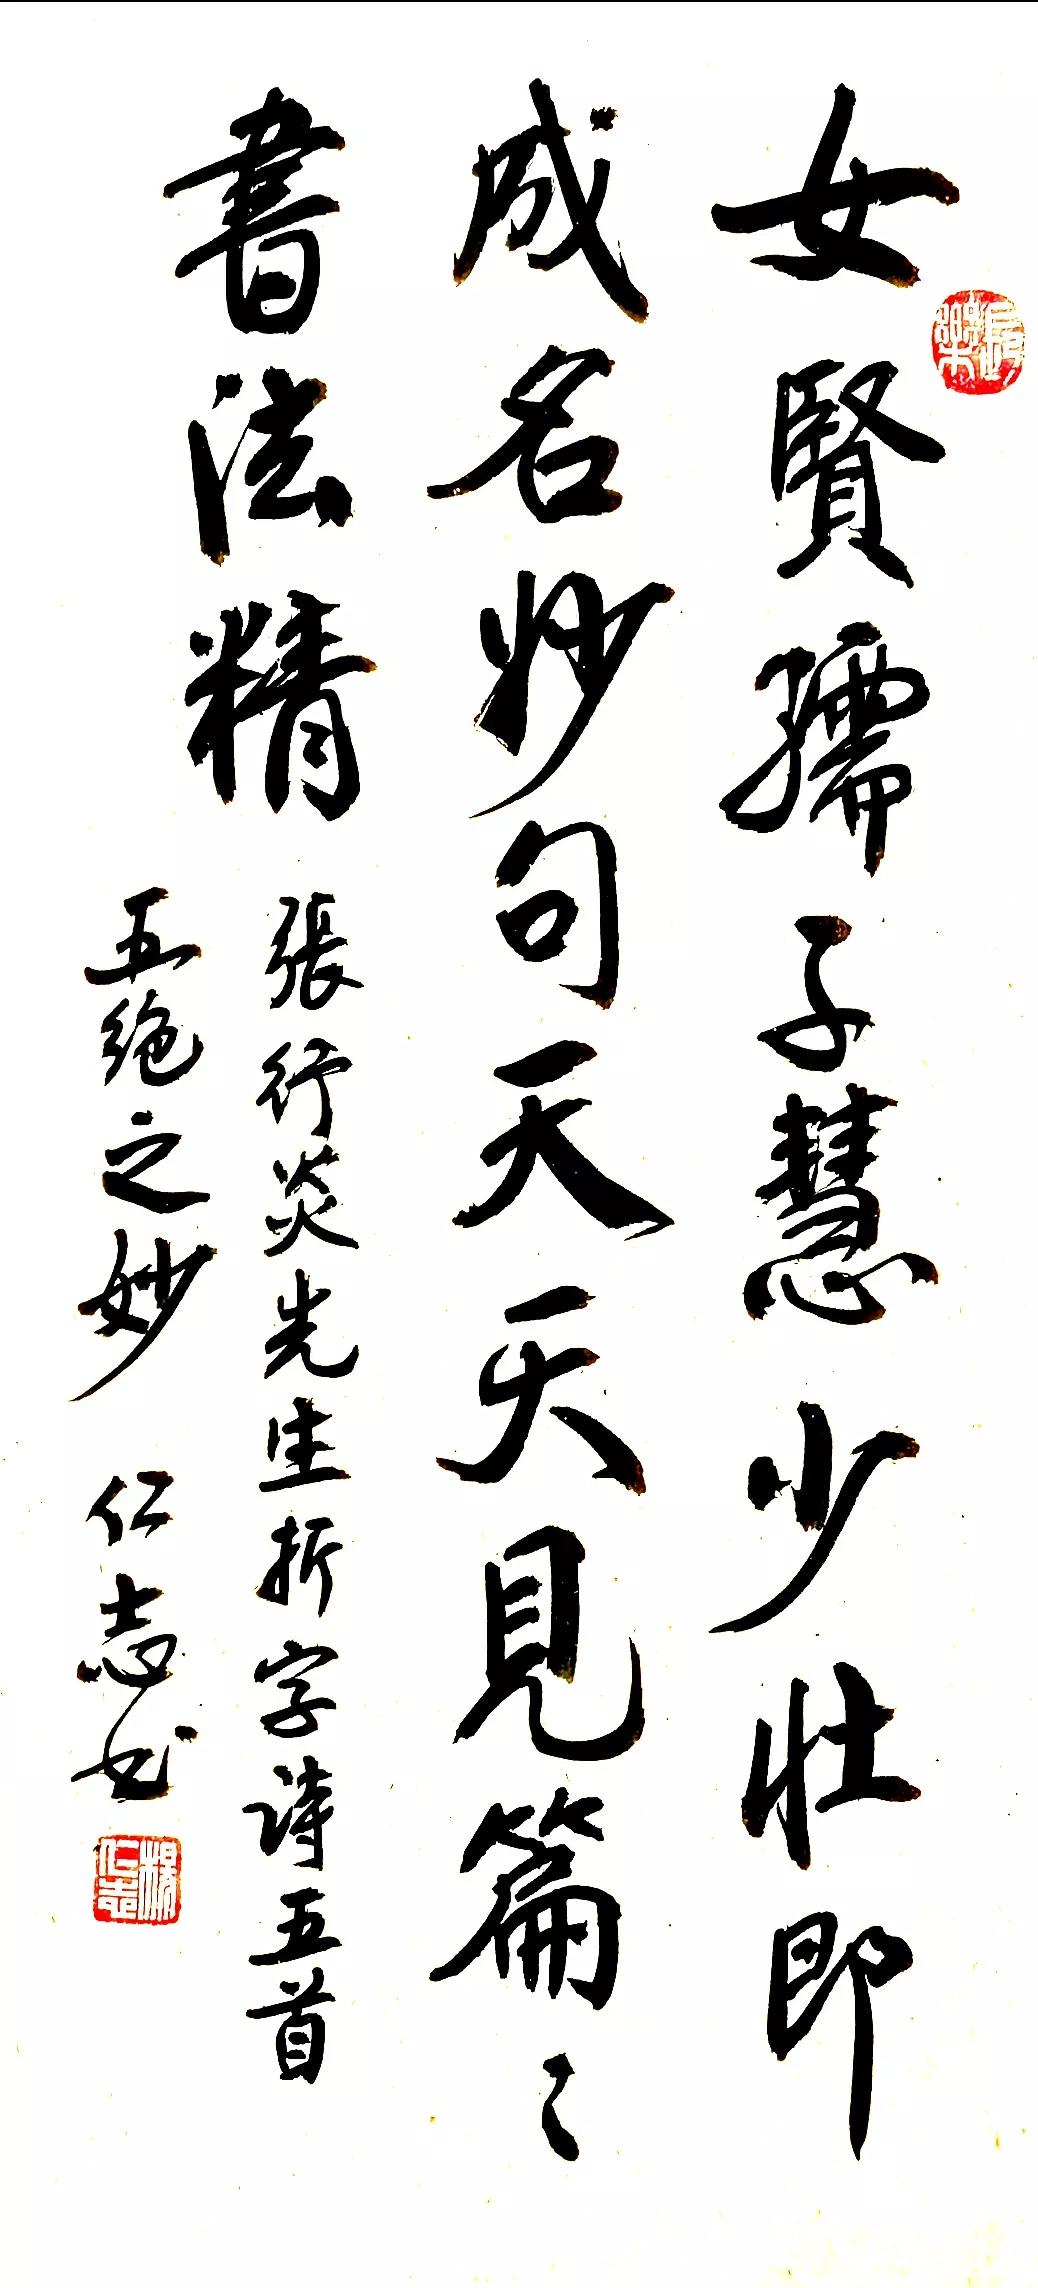 女賢孺子慧少壯即
成名妙句天天見篇〻
書法精
張行炎先生折字詩五首
五絶之妙 仁志书
楊仁志